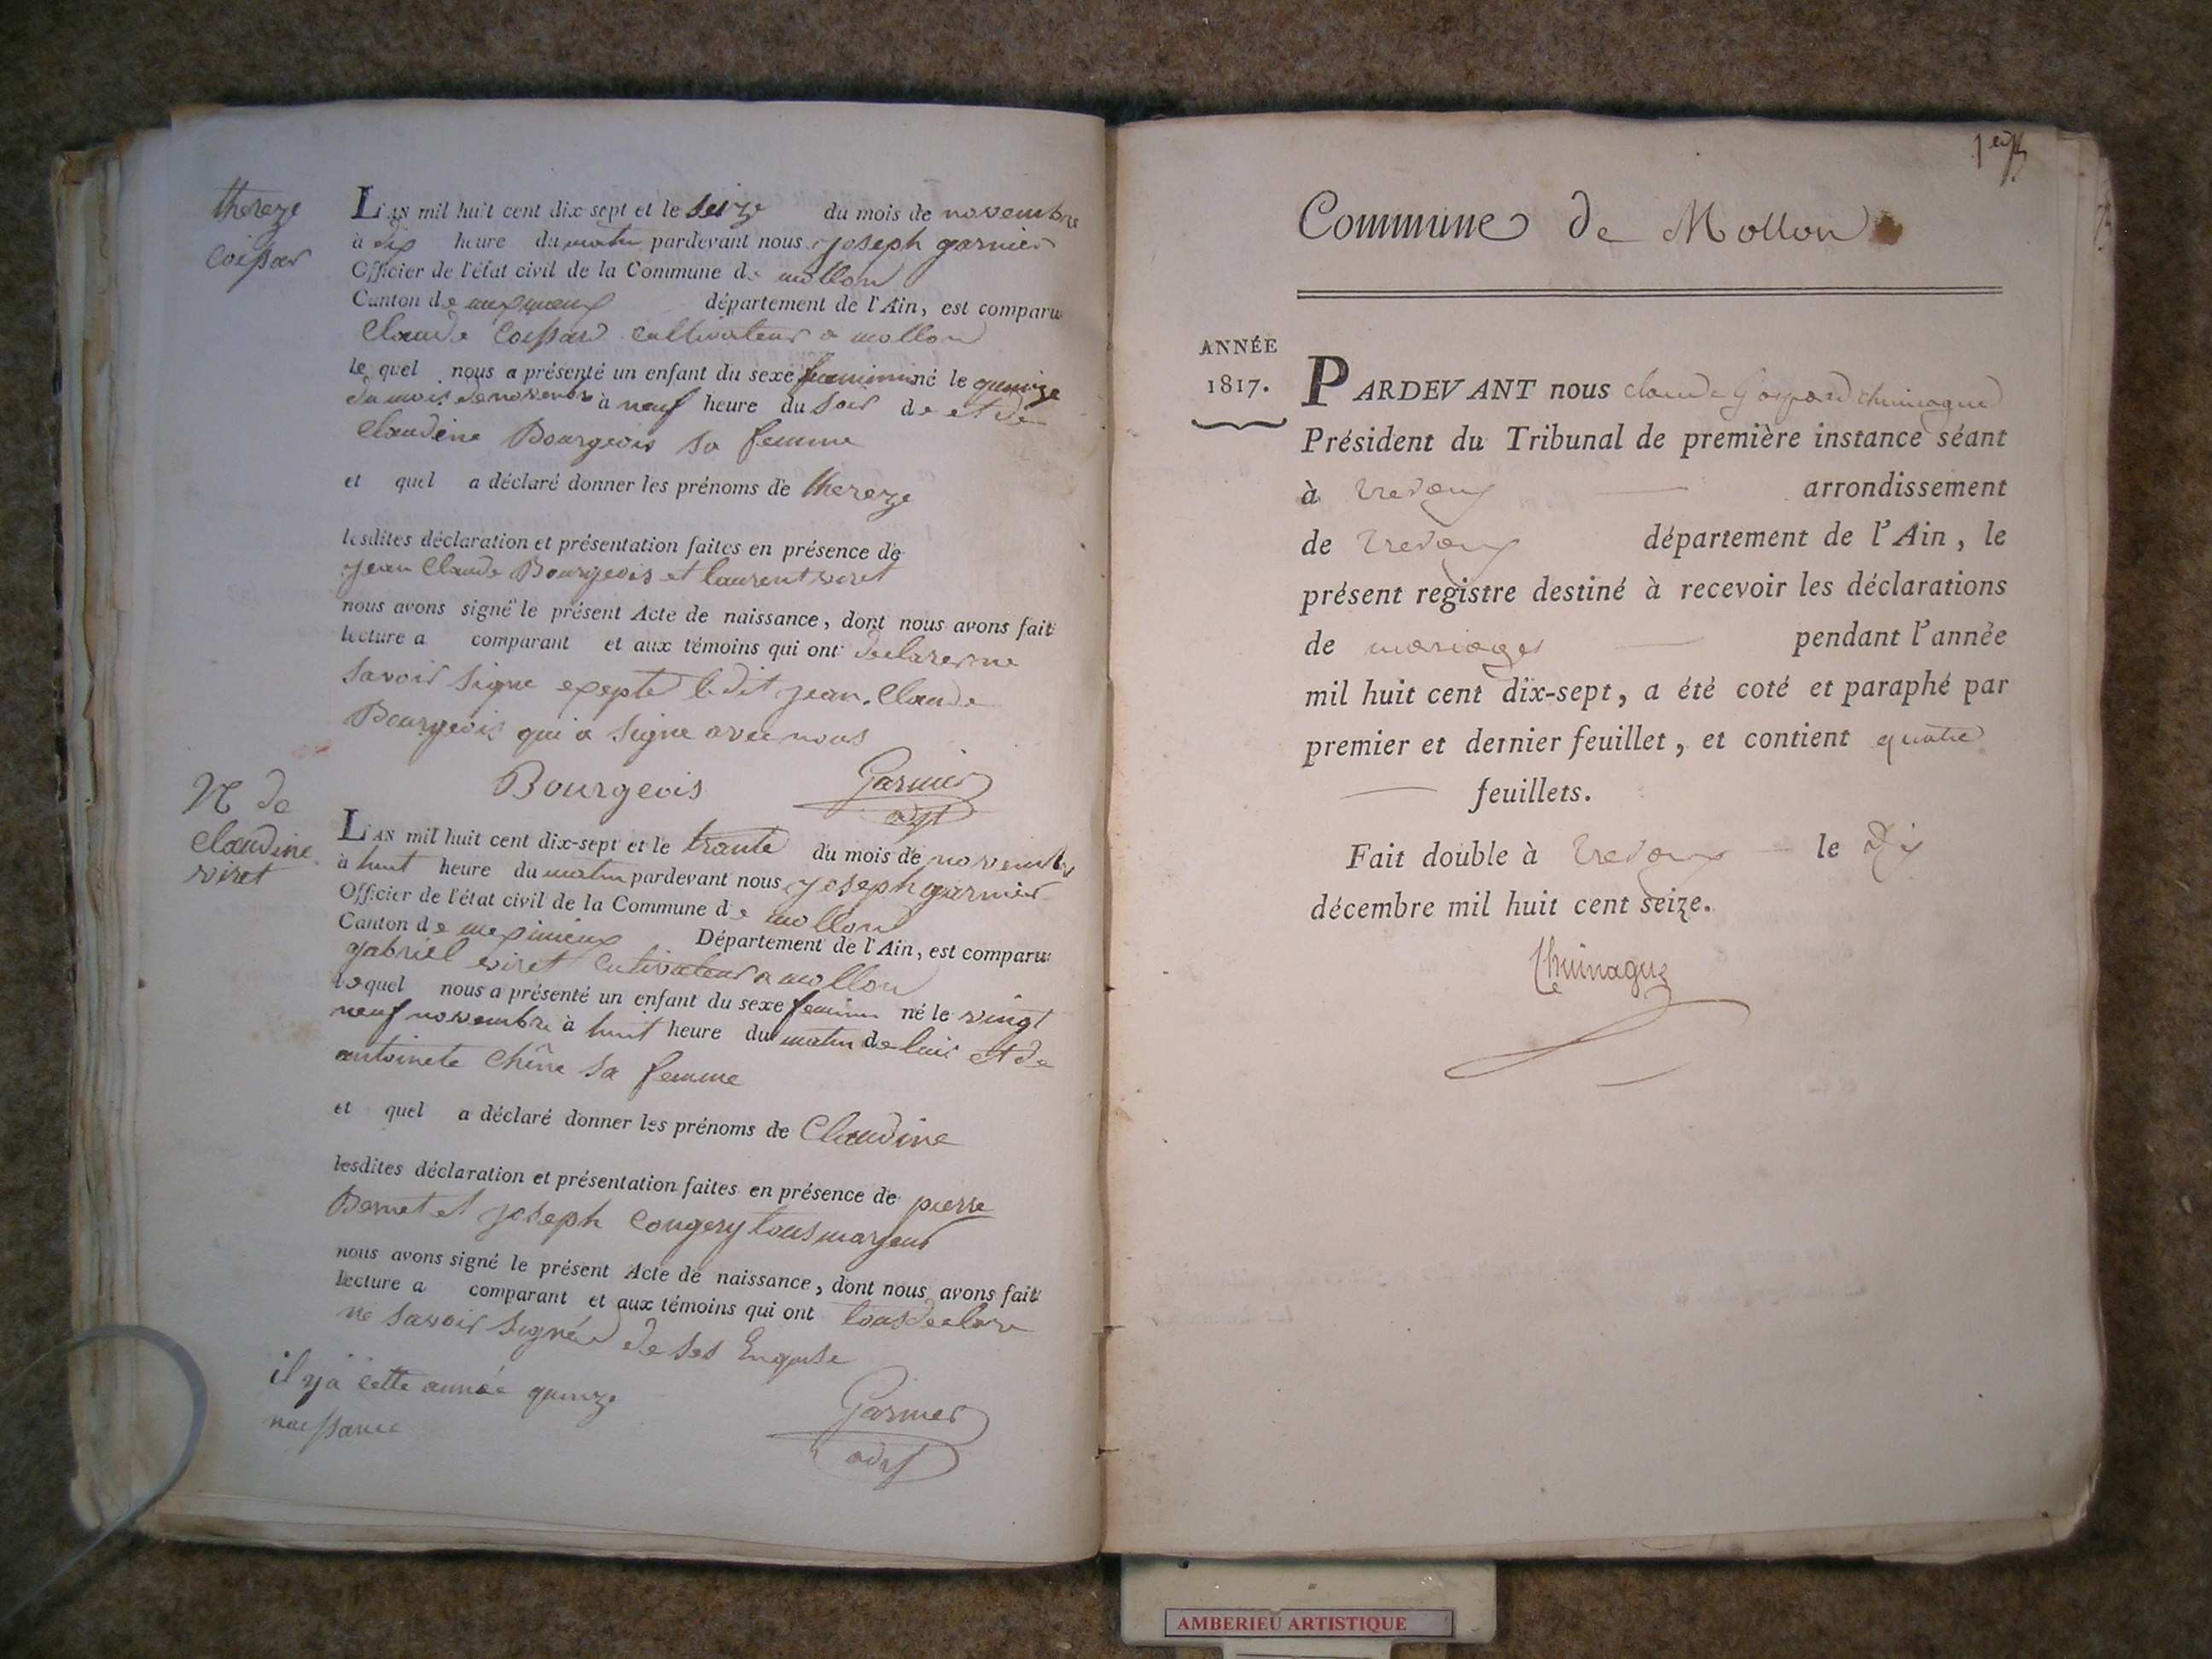 thereze
Coissar
L'AN mil huit cent dix-sept et le seize du mois de novembre
à dix heure du matin pardevant nous joseph garnier
Officier de l'état civil de la Commune de mollon
Canton de meximieux département de l'Ain, est comparu
Claude Coissard cultivateur a mollon
le quel nous a présenté un enfant du sexe feminin né le quinze
du mois de novembre à neuf heure du soir de et de
Claudine Bourgeois sa femme
et quel a déclaré donner les prénoms de thereze
lesdites déclaration et présentation faites en présence de
jean Claude Bourgeois et laurent viret
nous avons signé le présent Acte de naissance, dont nous avons fait
lecture a comparant et aux témoins qui ont declarer ne
savoir signe exepté ledit jean Claude
Bourgeois qui a signe avec nous
Bourgeois Garnier
adjt
N de
Claudine
viret
L'AN mil huit cent dix-sept et le trante du mois de novembre
à huit heure du matin pardevant nous joseph garnier
Officier de l'état civil de la Commune de mollon
Canton de meximieux Département de l'Ain, est comparu
gabriel viret cutivateur a mollon
lequel nous a présenté un enfant du sexe feminin né le vingt
neuf novembre à huit heure du matin de luis et de
antoinete Chêne sa femme
et quel a déclaré donner les prénoms de Claudine
lesdites déclaration et présentation faites en présence de pierre
Bernet et joseph Congery tous majeur
nous avons signé le présent Acte de naissance, dont nous avons fait
lecture a comparant et aux témoins qui ont tous declare
ne savoir signé de ses Enquise
il y a cette année quinze
naissance
Garnier
adjt
1er
Commune de Mollon
ANNÉE
1817.
PARDEVANT nous Claude Gaspard thuinague
Président du Tribunal de première instance séant
à Trevoux arrondissement
de Trevoux département de l'Ain, le
présent registre destiné à recevoir les déclarations
de mariages pendant l'année
mil huit cent dix-sept, a été coté et paraphé par
premier et dernier feuillet, et contient quatre
feuillets.
Fait double à Trevoux le Dix
décembre mil huit cent seize.
Thuinague
AMBERIEU ARTISTIQUE